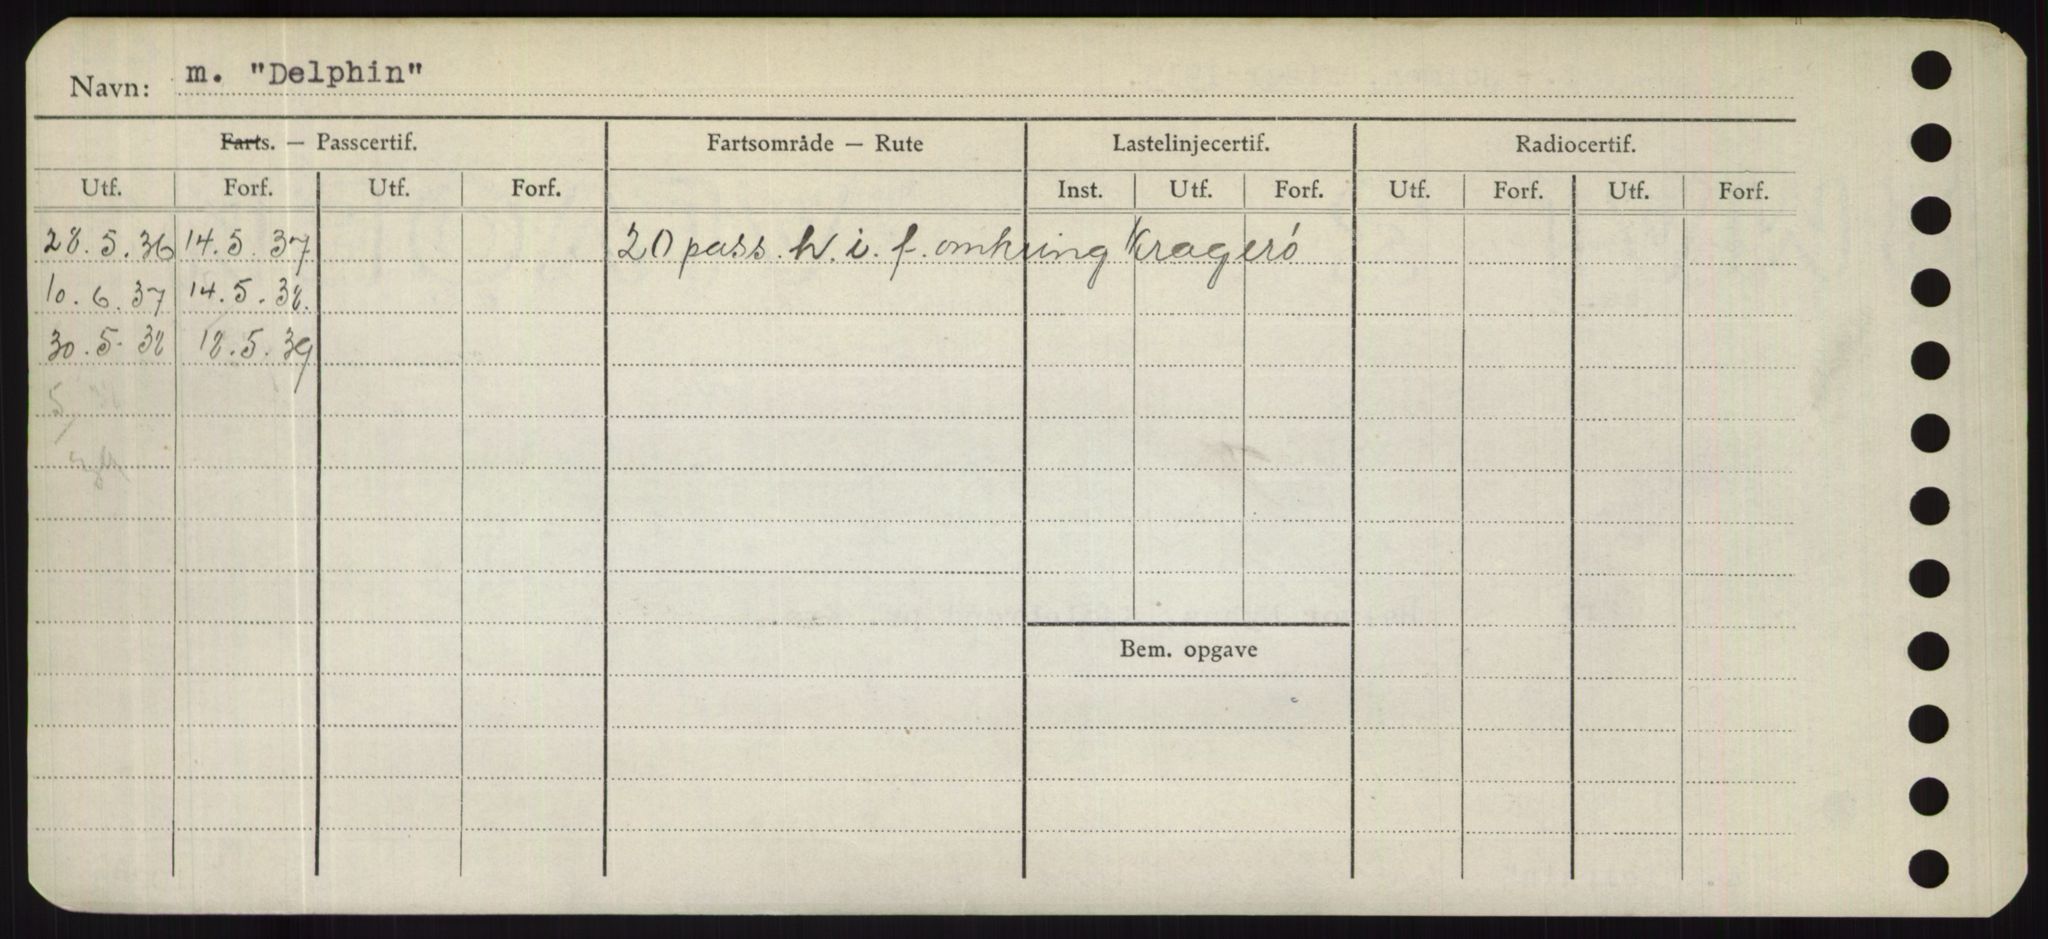 Navn: m. "Delphin"
Farts. — Passcertif. Fartsområde — Rute Lastelinjecertif. Radiocertif.
Utf. Forf. Utf. Forf. Inst. Utf. Forf. Utf. Forf. Utf. Forf.
28.5.36 14.5.37 20 pass. h. i. f. omkring Kragerö
10.6.37 14.5.38.
30.5.38 18.5.39
Bem. opgave